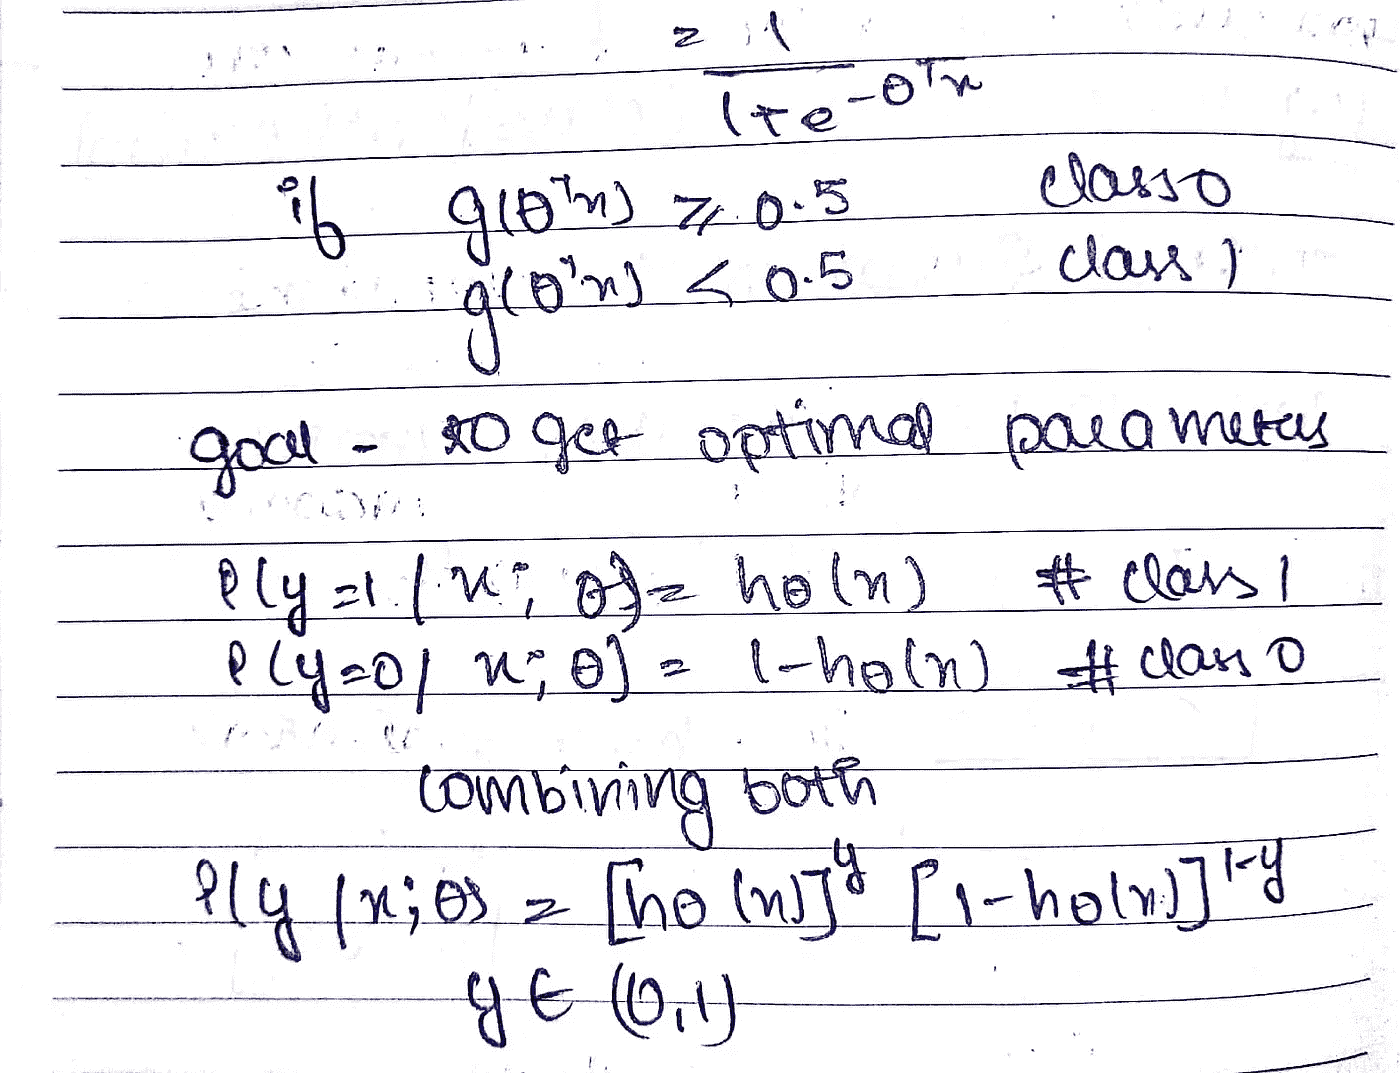 = 1 / 1+e^-θᵀx
if g(θᵀx) ≥ 0.5 class 0
g(θᵀx) < 0.5 class 1
goal - to get optimal parameters
P(y=1/x; θ) = hθ(x) # class 1
P(y=0/x; θ) = 1-hθ(x) # class 0
combining both
P(y/x; θ) = [hθ(x)]^y [1-hθ(x)]^1-y
y ∈ (0,1)